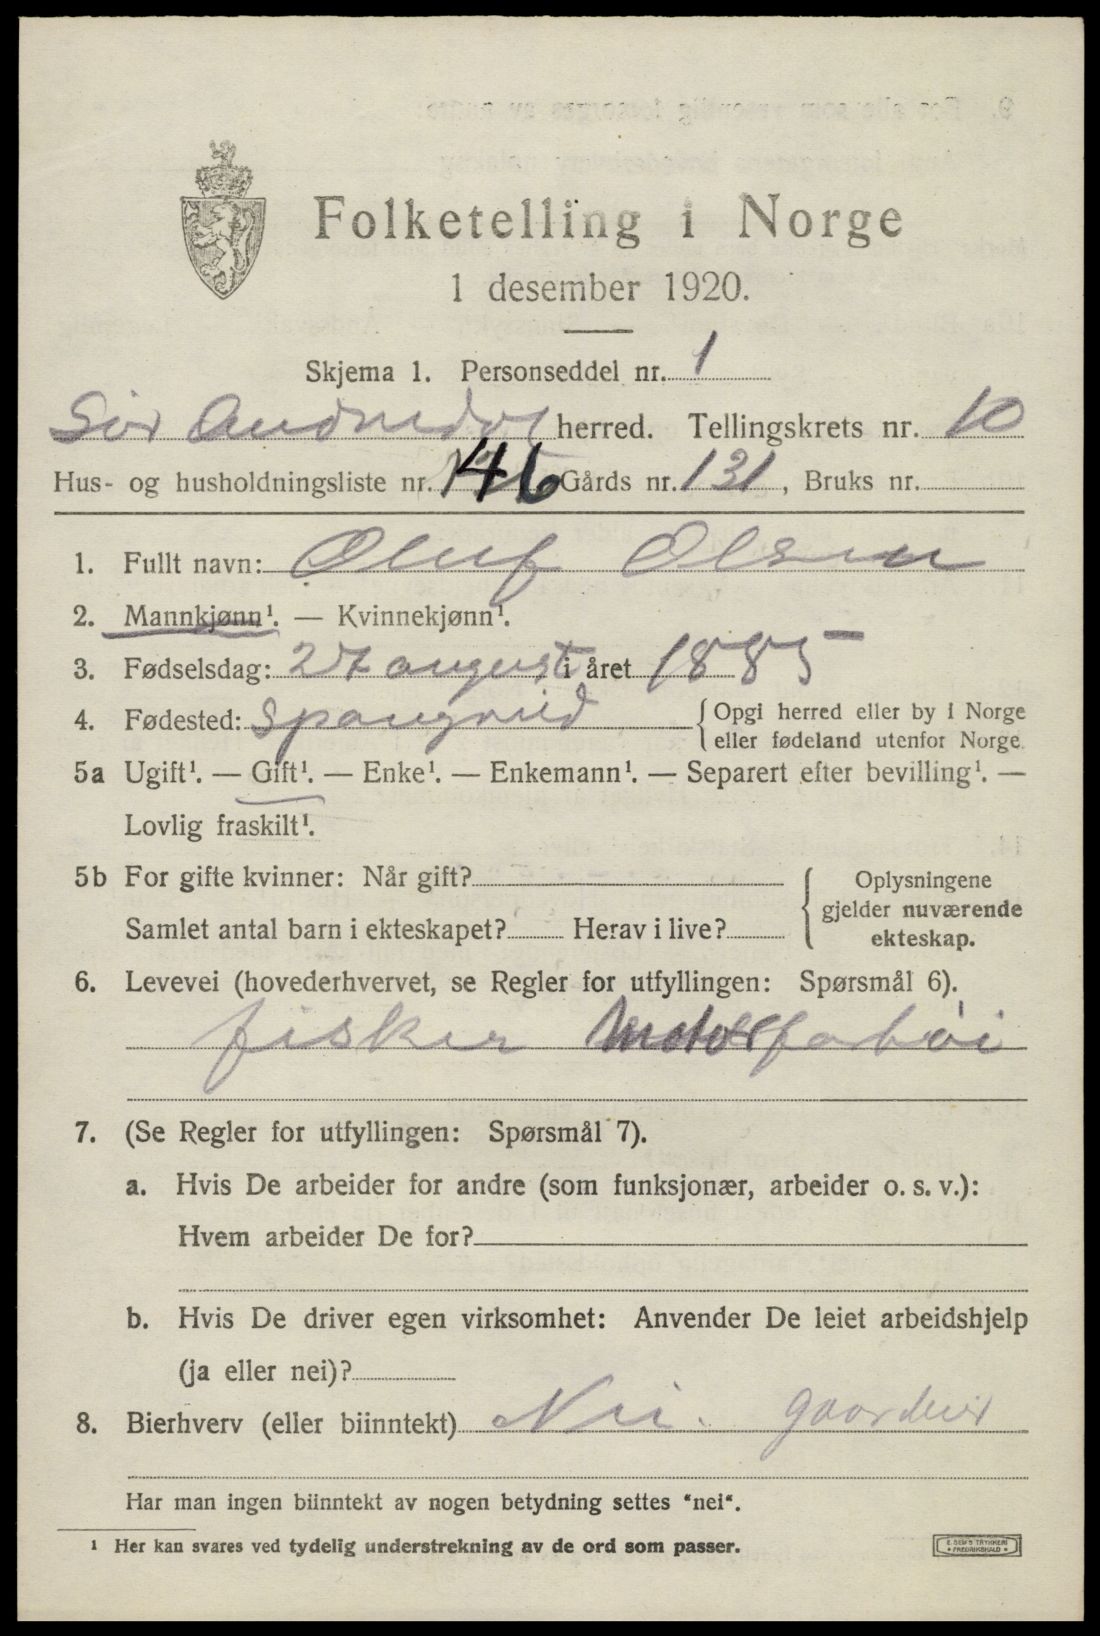 Folketelling i Norge
1 desember 1920.
Skjema 1. Personseddel nr. 1
Sør Audnedal herred. Tellingskrets nr. 10
Hus- og husholdningsliste nr. 146 Gårds nr. 131, Bruks nr.
1. Fullt navn: Oluf Olsen
2. Mannkjønn¹. — Kvinnekjønn¹.
3. Fødselsdag: 27 august i året 1885
4. Fødested: Spangereid { Opgi herred eller by i Norge
eller fødeland utenfor Norge.
5a Ugift¹. — Gift¹. — Enke¹. — Enkemann¹. — Separert efter bevilling¹. —
Lovlig fraskilt¹.
5b For gifte kvinner: Når gift?
Samlet antal barn i ekteskapet? Herav i live?
{ Oplysningene
gjelder nuværende
ekteskap.
6. Levevei (hovederhvervet, se Regler for utfyllingen: Spørsmål 6).
fisker
7. (Se Regler for utfyllingen: Spørsmål 7).
a. Hvis De arbeider for andre (som funksjonær, arbeider o. s. v.):
Hvem arbeider De for?
b. Hvis De driver egen virksomhet: Anvender De leiet arbeidshjelp
(ja eller nei)?
8. Bierhverv (eller biinntekt) Nei.
Har man ingen biinntekt av nogen betydning settes "nei".
¹ Her kan svares ved tydelig understrekning av de ord som passer.
E. SEM'S TRYKKERI
• FREDRIKSHALD •